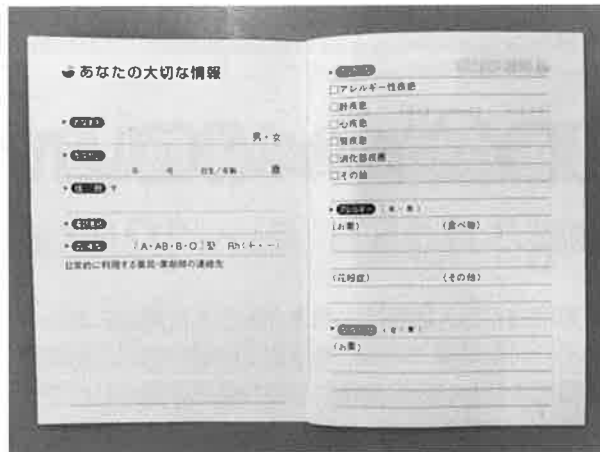 あなたの大切な情報
男・女
年 月 日生/年齢 歳
〒
(A・AB・B・O)型 Rh(+・-)
日常的に利用する薬局・薬剤師の連絡先
□アレルギー性疾患
□肝疾患
□心疾患
□腎疾患
□消化器疾患
□その他
アレルギー (有・無)
(お薬) (食べ物)
(花粉症) (その他)
(有・無)
(お薬)